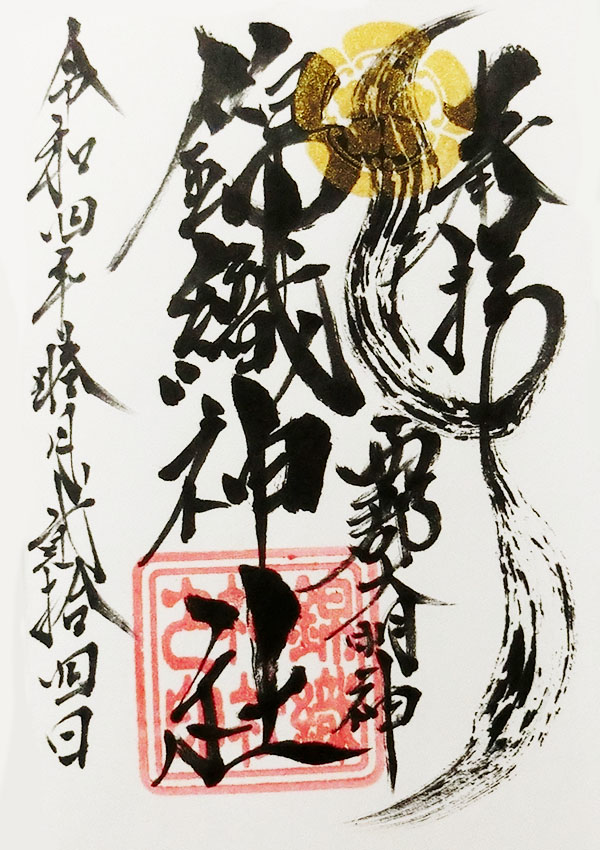 奉拝
大明神
錦織神社
令和四年睦月弐拾四日
錦織
神社
之印